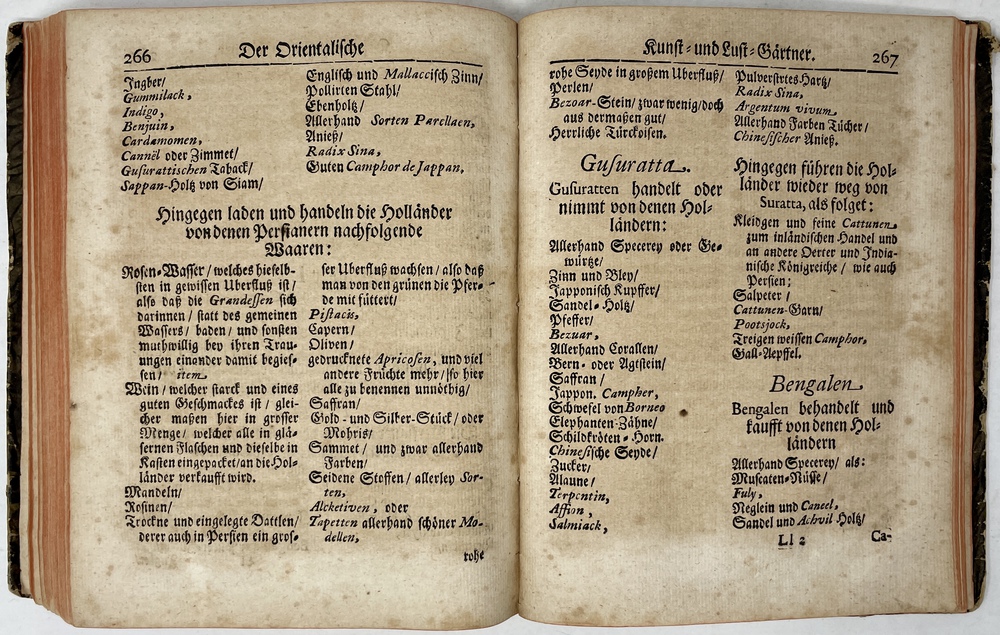 266
Der Orientalische
Ingber/
Gummilack,
Indigo,
Benjuin,
Cardamomen,
Cannel oder Zimmet/
Gusurattischen Taback/
Sappan-Holtz von Siam/
Englisch und Mallaccisch Zinn/
Pollirten Stahl/
Ebenholtz/
Allerhand Sorten Parcellaen,
Anieß/
Radix Sina,
Guten Camphor de Jappan,
Hingegen laden und handeln die Holländer
von denen Persianern nachfolgende
Waaren:
Rosen-Wasser/ welches hieselb-
sten in gewissen Uberfluß ist/
also daß die Grandessen sich
darinnen/ statt des gemeinen
Wassers/ baden/ und sonsten
muthwillig bey ihren Trau-
ungen einander damit begies-
sen/ item
Wein/ welcher starck und eines
guten Geschmackes ist/ glei-
cher maßen hier in grosser
Menge/ welcher alle in glä-
sernen Flaschen und dieselbe in
Kasten eingepacket/an die Hol-
länder verkaufft wird.
Mandeln/
Rosinen/
Trockne und eingelegte Dattlen/
derer auch in Persien ein gros-
ser Uberfluß wachsen/ also daß
man von den grünen die Pfer-
de mit füttert/
Pistacis,
Capern/
Oliven/
gedrucknete Apricosen, und viel
andere Früchte mehr/ so hier
alle zu benennen unnöthig/
Saffran/
Gold- und Silber-Stück/ oder
Mohris/
Sammet/ und zwar allerhand
Farben/
Seidene Stoffen/ allerley Sor-
ten,
Alcketiven, oder
Tapetten allerhand schöner Mo-
dellen,
rohe
Kunst- und Lust-Gärtner.
267
rohe Seyde in großem Uberfluß/
Perlen/
Bezoar-Stein/ zwar wenig/doch
aus dermaßen gut/
Herrliche Türckoisen.
Gusuratta.
Gusuratten handelt oder
nimmt von denen Hol-
ländern:
Allerhand Specerey oder Ge-
würtze/
Zinn und Bley/
Japponisch Kupffer/
Sandel-Holtz/
Pfeffer/
Bezuar,
Allerhand Corallen/
Bern- oder Agtstein/
Saffran/
Jappon. Campher,
Schwefel von Borneo
Elephanten-Zähne/
Schildkröten-Horn.
Chinesische Seyde/
Zucker/
Alaune/
Terpentin,
Affion,
Salmiack,
Pulverisirtes Hartz/
Radix Sina,
Argentum vivum,
Allerhand Farben Tücher/
Chinesischer Anieß.
Hingegen führen die Hol-
länder wieder weg von
Suratta, als folget:
Kleidgen und feine Cattunen
zum inländischen Handel und
an andere Oerter und India-
nische Königreiche/ wie auch
Persien;
Salpeter/
Cattunen-Garn/
Pootsjock,
Treigen weissen Camphor,
Gall-Aepffel.
Bengalen
Bengalen behandelt und
kaufft von denen Hol-
ländern
Allerhand Specerey/ als:
Muscaten-Nüsse/
Fuly,
Neglein und Caneel,
Sandel und Achvil Holtz/
Ll 2
Ca-